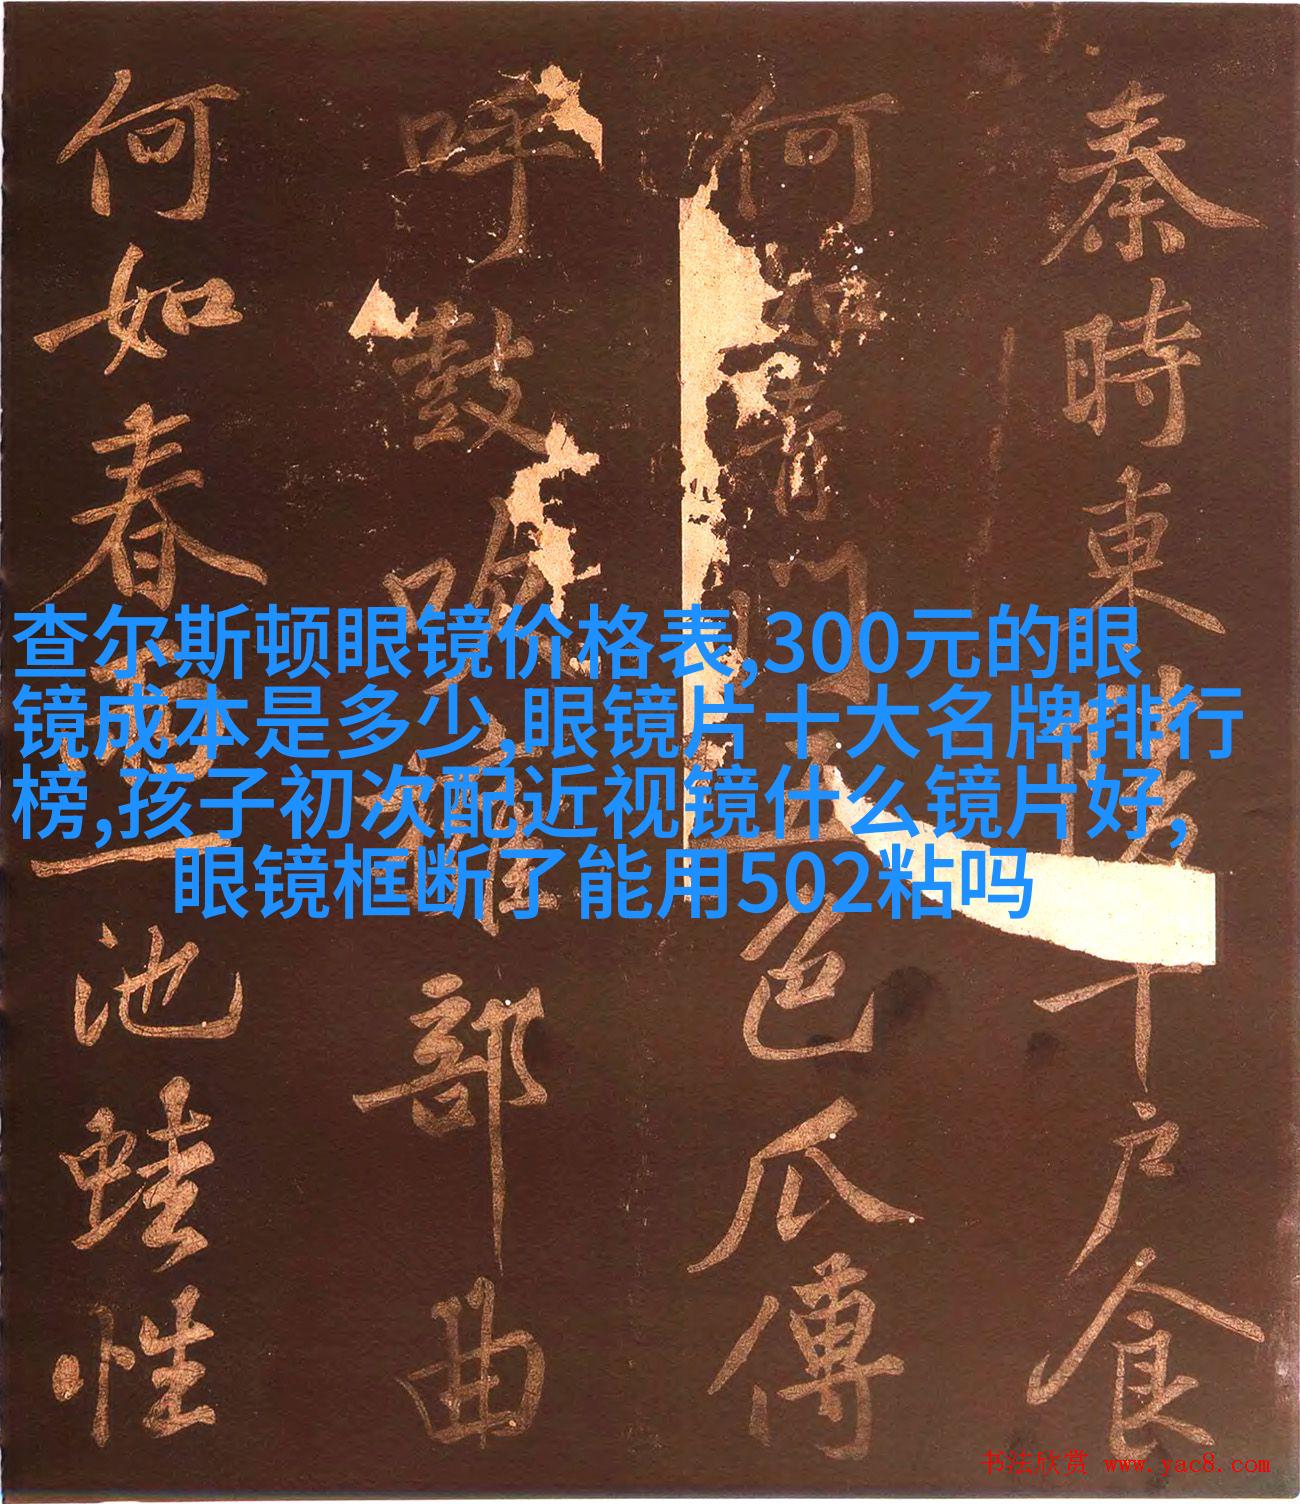 秦時東陵千户食
何如青門五色瓜傳
呼鼓吹部曲
何如春雨一池蛙性
查尔斯顿眼镜价格表,300元的眼
镜成本是多少,眼镜片十大名牌排行
榜,孩子初次配近视镜什么镜片好,
眼镜框断了能用502粘吗
书法欣赏 www.yac8.com